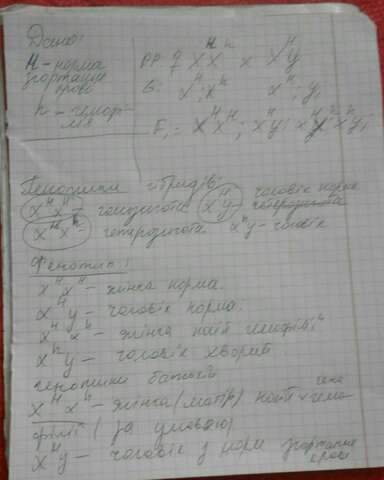 Дано:
H - норма
згортання
крові
h - гемофілія
PP: ♀ X^H X^h x X^H y
G: X^H; X^h X^H; y;
F1: X^H X^H; X^H y; X^H X^h; X^h y;
Генотипи гібридів:
X^H X^H - гомозигота X^H y - чоловік норма
X^H X^h - гетерозигота X^h y - чоловік
Фенотип:
X^H X^H - жінка норма.
X^H y - чоловік норма.
X^H X^h - жінка носій гемофілії
X^h y - чоловік хворий
генотипи батьків
X^H X^h - жінка (матір) носій гена гемо-
філії (за умовою)
X^H y - чоловік з норм згортання крові